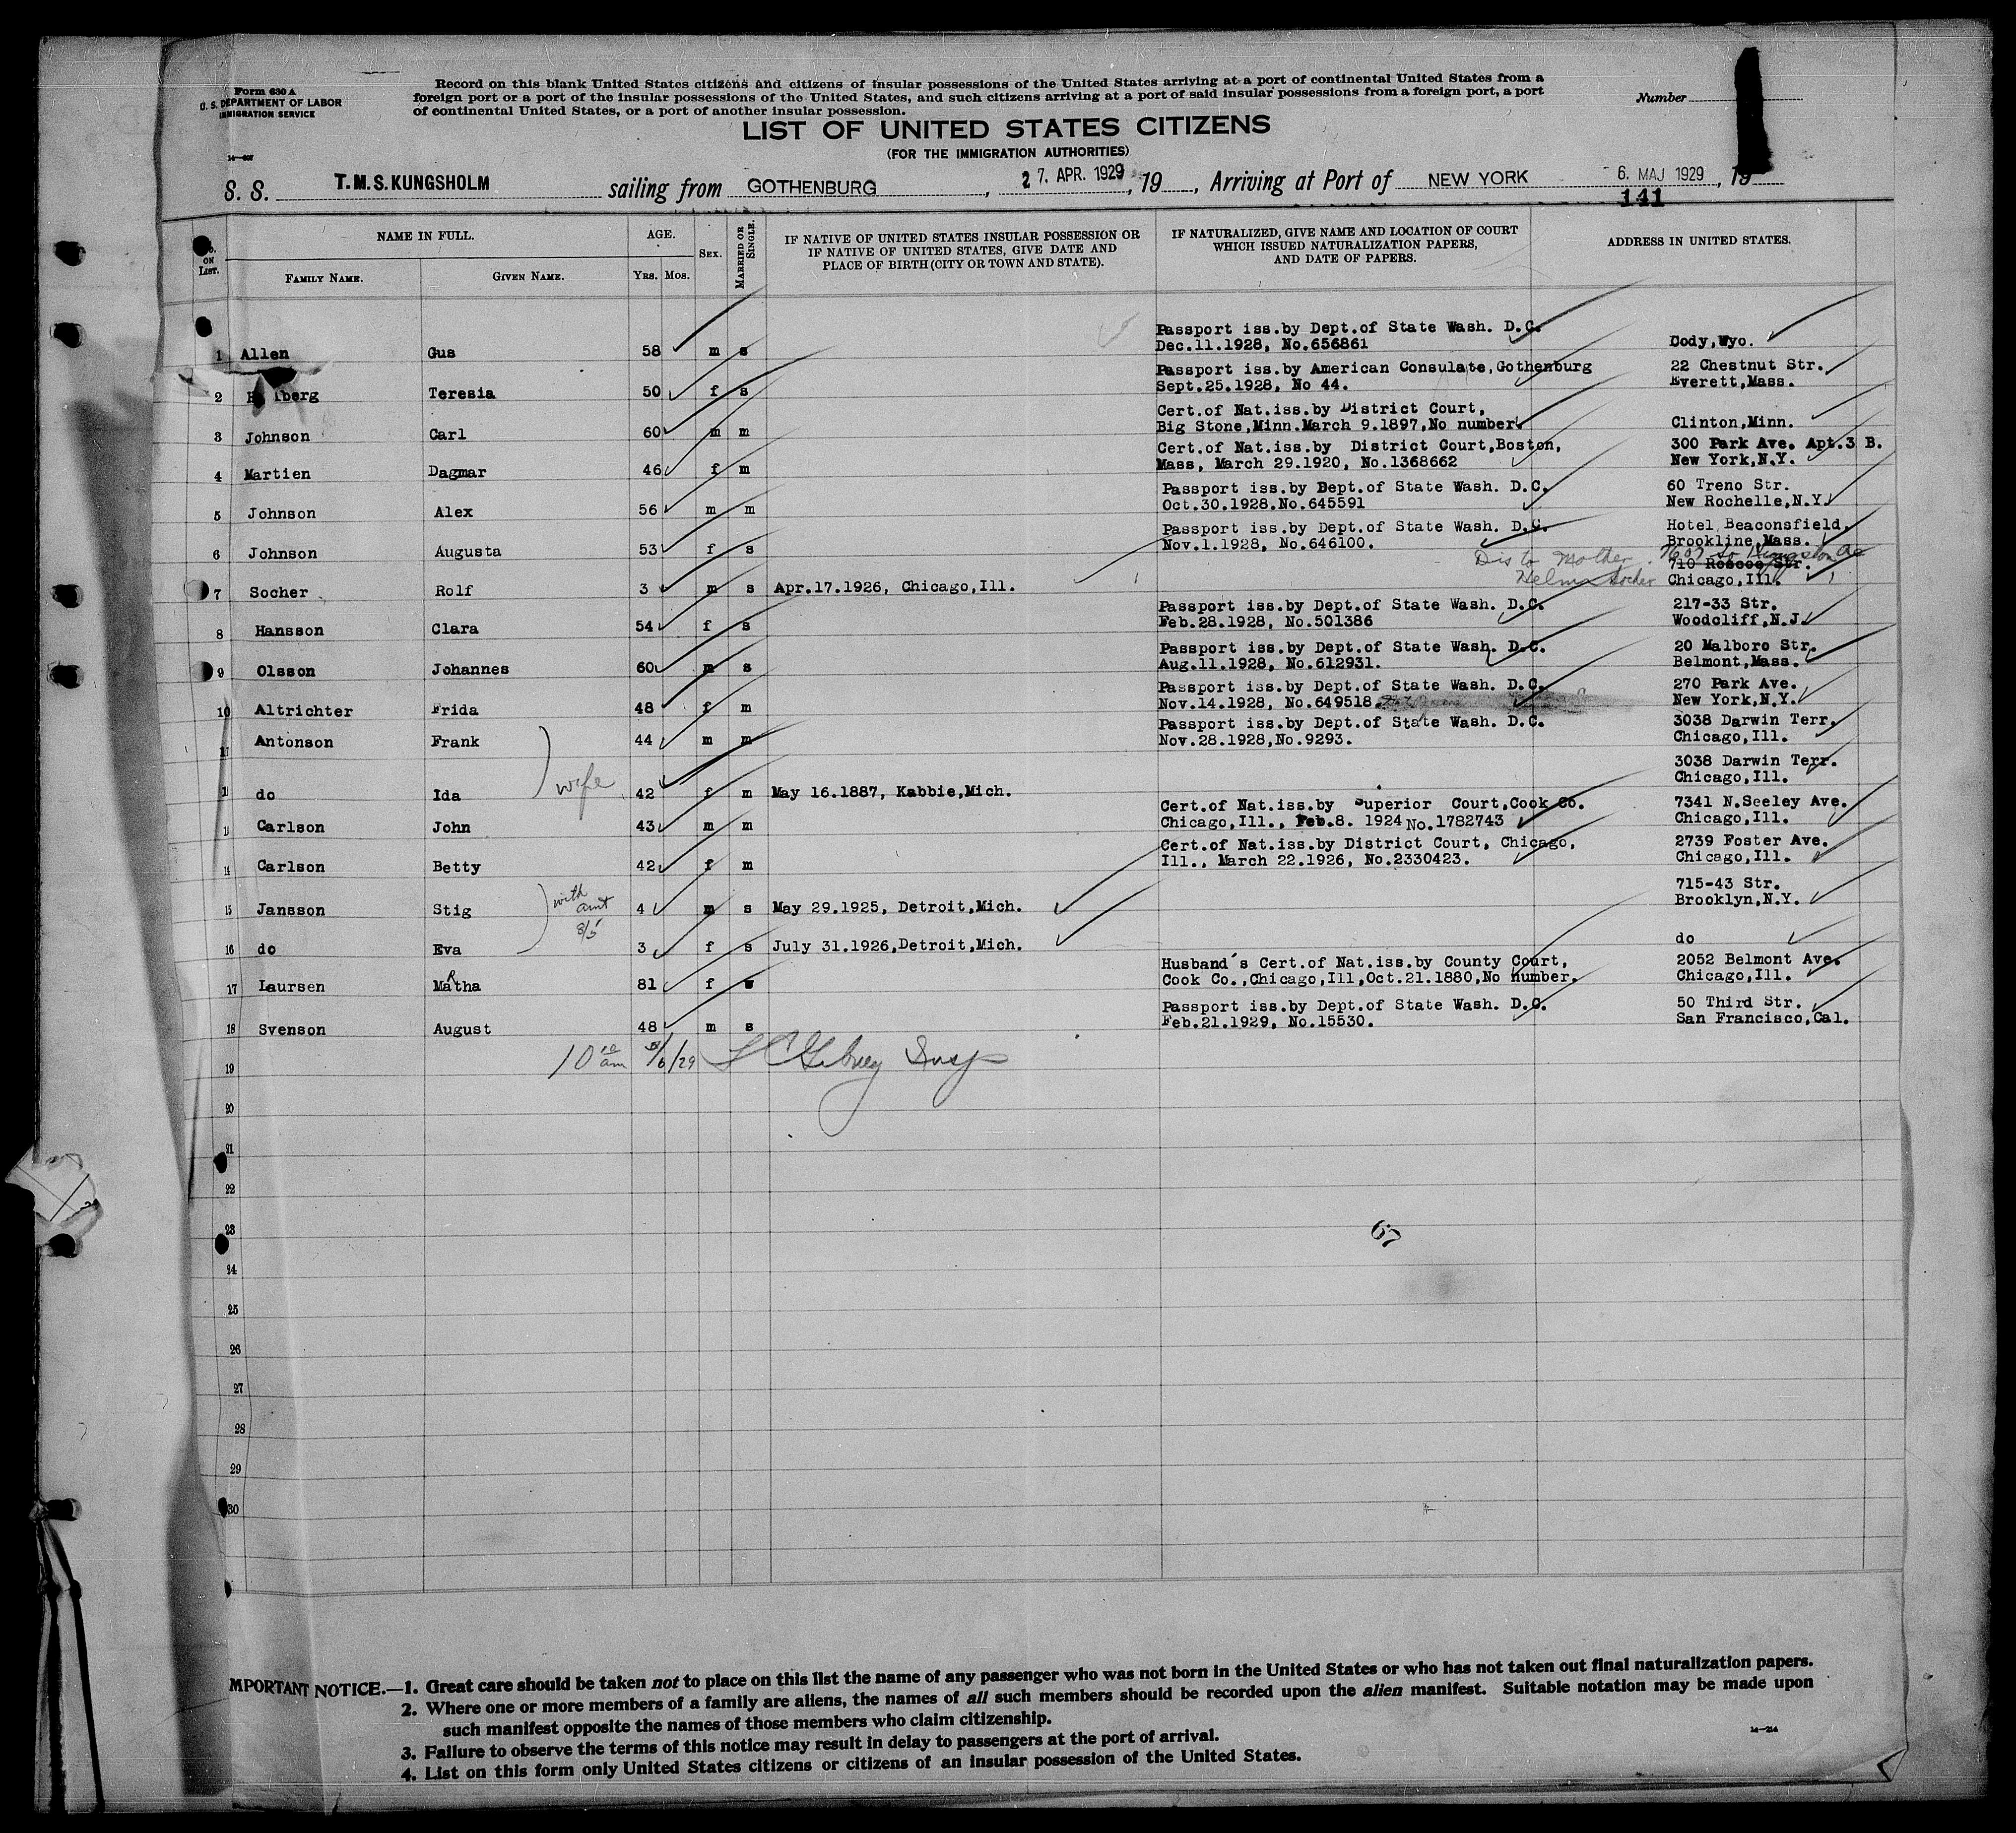 Form 630 A
U. S. DEPARTMENT OF LABOR
IMMIGRATION SERVICE
Record on this blank United States citizens and citizens of insular possessions of the United States arriving at a port of continental United States from a
foreign port or a port of the insular possessions of the United States, and such citizens arriving at a port of said insular possessions from a foreign port, a port
of continental United States, or a port of another insular possession.
Number
LIST OF UNITED STATES CITIZENS
(FOR THE IMMIGRATION AUTHORITIES)
S. S. T.M.S.KUNGSHOLM sailing from GOTHENBURG, 27. APR. 1929, 19, Arriving at Port of NEW YORK 6. MAJ 1929, 19
141
No. ON LIST. NAME IN FULL. FAMILY NAME. GIVEN NAME. AGE. YRS. MOS. SEX. MARRIED OR SINGLE.
IF NATIVE OF UNITED STATES INSULAR POSSESSION OR
IF NATIVE OF UNITED STATES, GIVE DATE AND
PLACE OF BIRTH (CITY OR TOWN AND STATE).
IF NATURALIZED, GIVE NAME AND LOCATION OF COURT
WHICH ISSUED NATURALIZATION PAPERS,
AND DATE OF PAPERS.
ADDRESS IN UNITED STATES.
Passport iss.by Dept.of State Wash. D.C.
1 Allen Gus 58 m s Dec.11.1928, No.656861 Cody,Wyo.
Passport iss.by American Consulate,Gothenburg 22 Chestnut Str.
2 Teresia 50 f s Sept.25.1928, No 44. Everett,Mass.
Cert.of Nat.iss.by District Court,
3 Johnson Carl 60 m m Big Stone,Minn.March 9.1897,No number. Clinton,Minn.
Cert.of Nat.iss.by District Court,Boston, 300 Park Ave. Apt.3 B.
4 Martien Dagmar 46 f m Mass, March 29.1920, No.1368662 New York,N.Y.
Passport iss.by Dept.of State Wash. D.C. 60 Treno Str.
5 Johnson Alex 56 m m Oct.30.1928.No.645591 New Rochelle,N.Y.
Passport iss.by Dept.of State Wash. D.C. Hotel Beaconsfield,
6 Johnson Augusta 53 f s Nov.1.1928, No.646100. Brookline,Mass.
Dis to mother
710 Roscoe Str.
7 Socher Rolf 3 m s Apr.17.1926, Chicago,Ill. Helma Socher Chicago,Ill.
Passport iss.by Dept.of State Wash. D.C. 217-33 Str.
8 Hansson Clara 54 f s Feb.28.1928, No.501386 Woodcliff,N.J.
Passport iss.by Dept.of State Wash. D.C. 20 Malboro Str.
9 Olsson Johannes 60 m s Aug.11.1928, No.612931. Belmont,Mass.
Passport iss.by Dept.of State Wash. D.C. 270 Park Ave.
10 Altrichter Frida 48 f m Nov.14.1928, No.649518. New York,N.Y.
Passport iss.by Dept.of State Wash. D.C. 3038 Darwin Terr.
11 Antonson Frank 44 m m Nov.28.1928,No.9293. Chicago,Ill.
wife
3038 Darwin Terr.
Chicago,Ill.
1 do Ida 42 f m May 16.1887, Kabbie,Mich.
Cert.of Nat.iss.by Superior Court,Cook Co. 7341 N.Seeley Ave.
1 Carlson John 43 m m Chicago,Ill., Feb.8. 1924 No.1782743 Chicago,Ill.
Cert.of Nat.iss.by District Court, Chicago, 2739 Foster Ave.
14 Carlson Betty 42 f m Ill., March 22.1926, No.2330423. Chicago,Ill.
with aunt 8/5
715-43 Str.
15 Jansson Stig 4 m s May 29.1925, Detroit,Mich. Brooklyn,N.Y.
16 do Eva 3 f s July 31.1926,Detroit,Mich. do
Husband's Cert.of Nat.iss.by County Court, 2052 Belmont Ave.
17 Laursen MaRtha 81 f s Cook Co.,Chicago,Ill,Oct.21.1880,No number. Chicago,Ill.
Passport iss.by Dept.of State Wash. D.C. 50 Third Str.
18 Svenson August 48 m s Feb.21.1929, No.15530. San Francisco,Cal.
10 10 am 5/6/29 Insp
19
20
21
22
23
67
24
25
26
27
28
29
30
MPORTANT NOTICE.—1. Great care should be taken not to place on this list the name of any passenger who was not born in the United States or who has not taken out final naturalization papers.
2. Where one or more members of a family are aliens, the names of all such members should be recorded upon the alien manifest. Suitable notation may be made upon
such manifest opposite the names of those members who claim citizenship.
3. Failure to observe the terms of this notice may result in delay to passengers at the port of arrival.
4. List on this form only United States citizens or citizens of an insular possession of the United States.